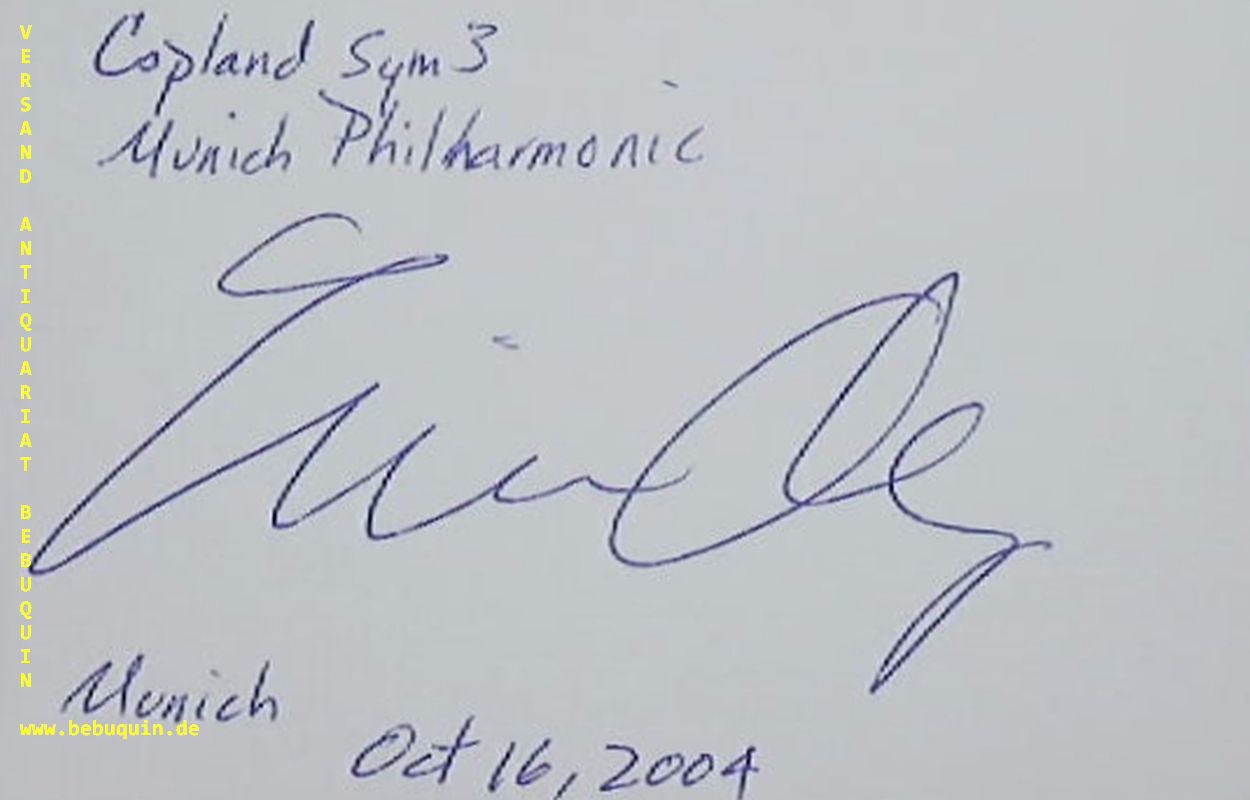 Copland Sym 3
Munich Philharmonic
Munich
Oct 16, 2004
VERSAND ANTIQUARIAT BEBUQUIN
www.bebuquin.de